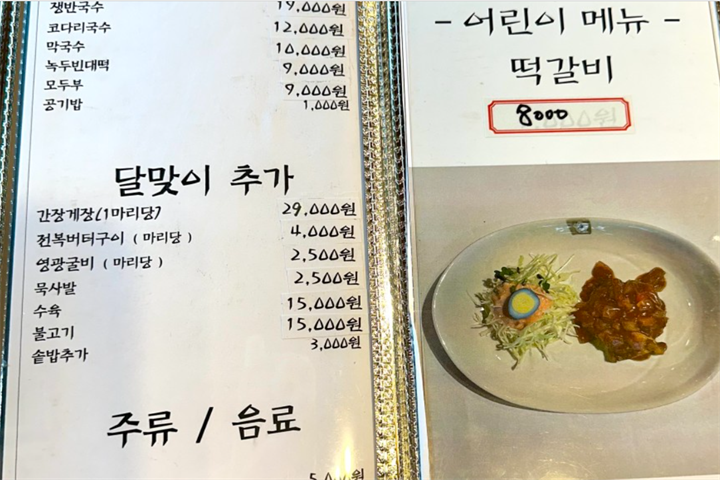 쟁반국수 19,000원
코다리국수 12,000원
막국수 10,000원
녹두빈대떡 9,000원
모두부 9,000원
공기밥 1,000원
달맞이 추가
간장게장(1마리당) 29,000원
전복버터구이 ( 마리당 ) 4,000원
영광굴비 ( 마리당 ) 2,500원
묵사발 2,500원
수육 15,000원
불고기 15,000원
솥밥추가 3,000원
주류 / 음료
- 어린이 메뉴 -
떡갈비
8000